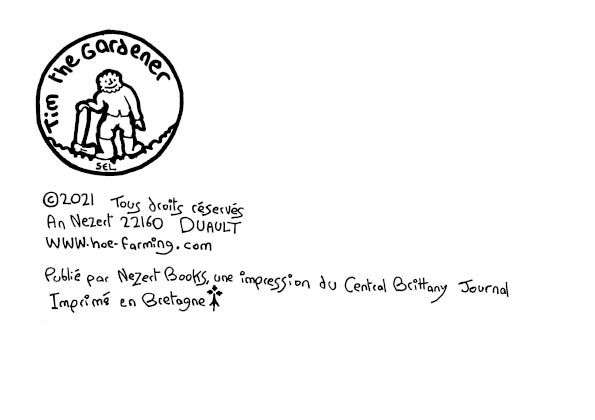 Tim the Gardener
SEL
©2021 Tous droits réservés
An Nezert 22160 DUAULT
WWW.hoe-farming.com
Publié par Nezert Books, une impression du Central Brittany Journal
Imprimé en Bretagne